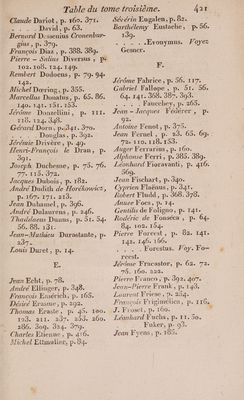 Table du tome troisième. 421
Claude Dariot, p. 160. 371.
. . . . David, p. 63.
Bernard Dessenius Cronenbur-
gius, p. 379.
François Diaz, p. 388. 389.
Pierre-Salius Diversus, p.
102. 108. 124. 149.
Rembert Dodoens, p. 79. 94.
142.
Michel Doring, p. 355.
Marcellus Donatus, p. 65. 86.
140. 141. 151. 153.
Jérôme Donzelini, p. 111.
118. 124. 348.
Gérard Dorn, p. 341. 370.
. . . . Douglas, p. 392.
Jérémie Drivère, p. 49.
Henri-François le Dran, p.
391.
Joseph Duchesne, p. 75. 76.
77. 115. 372.
Jacques Dubois, p. 182.
André Dudith de Horékowicz,
p. 167. 171. 213.
Jean Duhamel, p. 396.
André Dulaurens, p. 246.
Thaddaeus Dunus, p. 51. 54.
56. 88. 131.
Jean-Mathieu Durastante, p.
237.
Louis Duret, p. 14.
E.
Jean Echt, p. 78.
André Ellinger, p. 348.
François Enuérich, p. 165.
Désiré Erasme, p. 292.
Thomas Eraste, p. 45. 100.
123. 211. 237. 253. 260.
286. 309. 324. 379.
Charles Etienne, p. 416.
Michel Ettmuller, p. 84.
Séverin Eugalen, p. 82.
Barthélemy Eustache, p. 56.
139.
. . . . Evonymus. Voyez
Gesner.
F.
Jérôme Fabrice, p. 56. 117.
Gabriel Fallope, p. 51. 56.
64. 141. 358. 387. 393.
. . . . Faucelhey, p. 265.
Jean-Jacques Féderer, p.
92.
Antoine Fenot, p. 375.
Jean Fernel, p. 23. 65. 69.
72. 110. 118. 153.
Auger Ferrarius, p. 160.
Alphonse Ferri, p. 385. 389.
Léonhard Fioravanti, p. 416.
Jean Fischart, p. 340.
Cyprien Flaënus, p. 241.
Robert Fludd, p. 368. 378.
Anuce Foes, p. 14.
Gentilis de Foligno, p. 141.
Rodéric de Fonseca, p. 64.
84. 102. 154.
Pierre Forrest, p. 82. 141.
142. 146. 166.
. . . . Forestus. Voy. Fo-
reest.
Jérôme Fracastor, p. 62. 72.
76. 160. 222.
Pierre Franco, p. 392. 407.
Jean-Pierre Frank, p. 143.
Laurent Friese, p. 254.
François Frigimelica, p. 116.
J. Frosel, p. 160.
Léonhard Fuchs, p. 11. 50.
Fuker, p. 93.
Jean Fyens, p. 185.